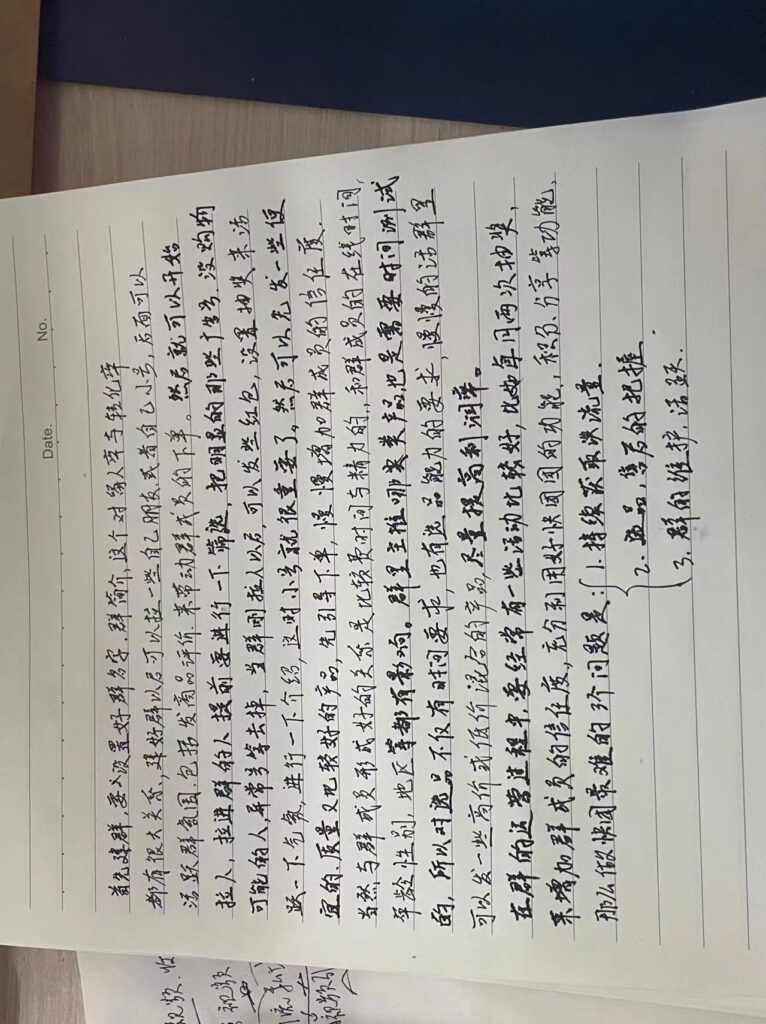 Date.
No.
首先建群,要设置好群名字,群简介,这个对留人率与转化率
都有很大关系,建好群以后可以拉一些自己朋友或者自己小号,后面可以
活跃群氛围.包括发商品评价.来带动群成员的下单。然后就可以开始
拉人,拉进群的人提前要进行一下筛选,把明显的那些广告号,没购物
可能的人,异常号等去掉,当群刚拉人以后,可以发些红包,设置抽奖来活
跃一下气氛,进行一下介绍,这时小号就很重要了.然后可以先发一些便
宜的,质量又比较好的产品,先引导下单,慢慢增加群成员的信任度.
当然与群成员形成好的关系是比较费时间与精力的,和群成员的在线时间,
年龄性别,地区等都有影响。群里主推哪类产品也是需要时间测试
的,所以对选品不仅有时间要求,也有选品能力的要求,慢慢的话群里
可以发一些高价或低价混合的产品,尽量提高利润率。
在群的运营过程中,要经常有一些活动比较好,比如每月两次抽奖,
充分利用好快团团的功能,积分、分享等功能,
来增加群成员的信任度.
那么做快团最难的3个问题是:1.持续获取快流量.
2.选品,售后的把握.
3.群的维护,活跃.
视频.收
视频
视频